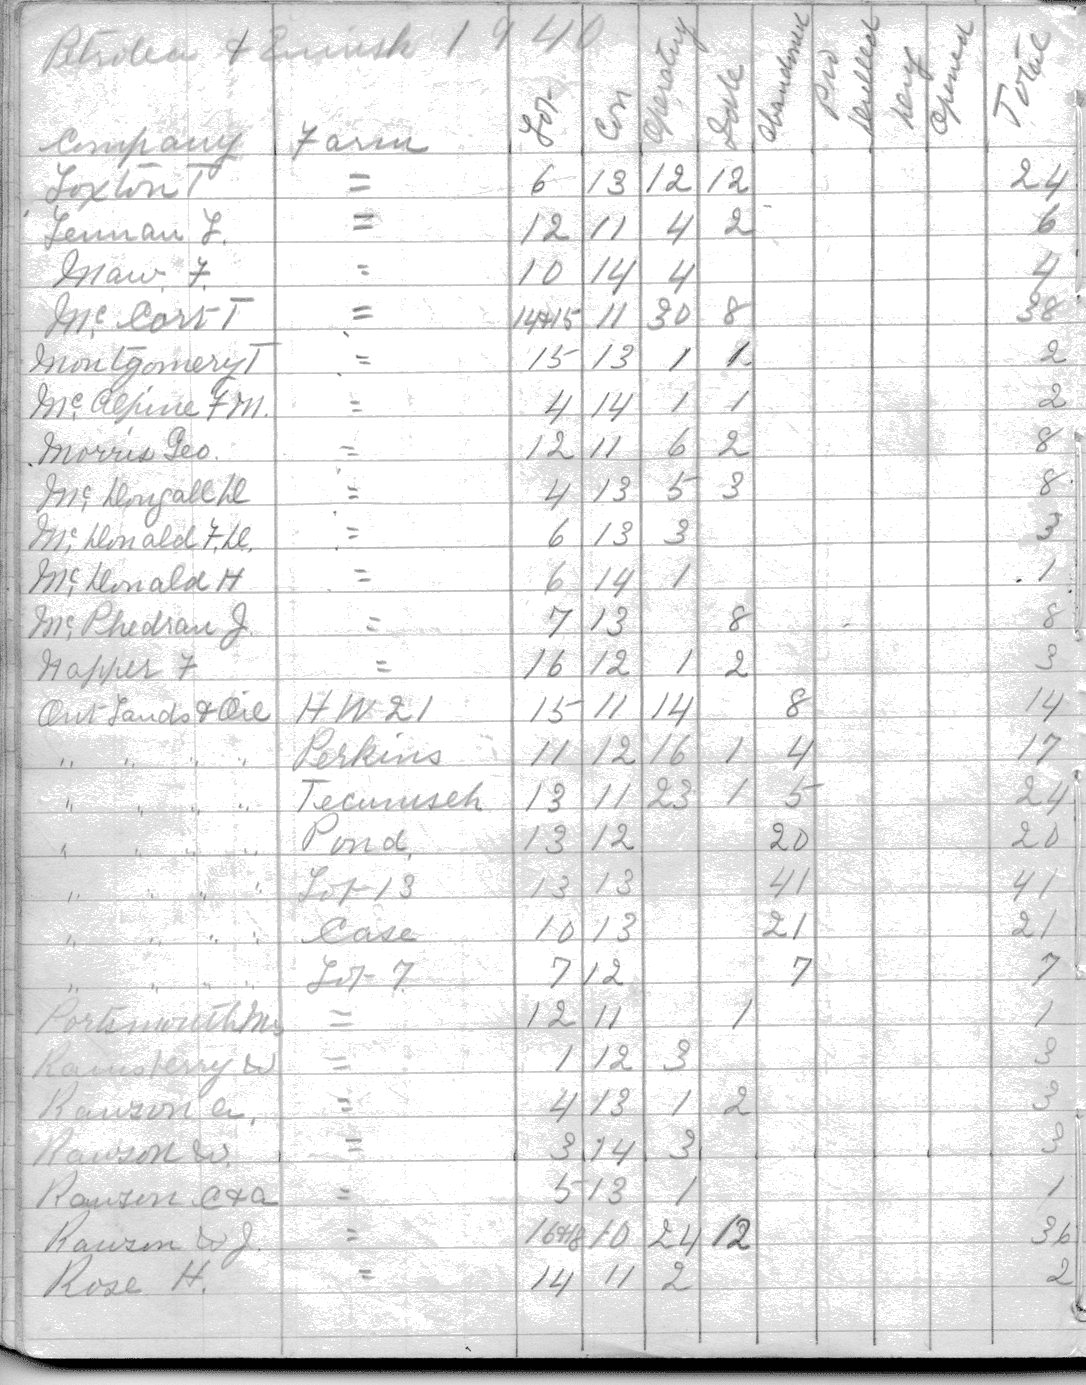 Petrolea & Ennisk 1940
Company Farm Lot Con Operating Idle Abandoned Pro Drilled Dry Opened Total
Loxton T = 6 13 12 12 24
Lennan L. = 12 11 4 2 6
Maw. F. = 10 14 4 4
Mc. Cort T = 14+15 11 30 8 38
Montgomery T = 15 13 1 1 2
Mc. Alpine F M. = 4 14 1 1 2
Morris Geo. = 12 11 6 2 8
Mc. Dougall D = 4 13 5 3 8
Mc. Donald F. D. = 6 13 3 3
Mc. Donald H = 6 14 1 1
Mc. Phedran J. = 7 13 8 8
Napper F = 16 12 1 2 3
Ont Lands & Oil H W 21 15 11 14 8 14
" " " " Perkins 11 12 16 1 4 17
" " " " Tecumseh 13 11 23 1 5 24
" " " " Pond, 13 12 20 20
" " " " Lot 13 13 13 41 41
" " " " Case 10 13 21 21
" " " " Lot 7 7 12 7 7
Portsmouth = 12 11 1 1
W = 1 12 3 3
Rawson A. = 4 13 1 2 3
Rawson W. = 3 14 3 3
Rawson C & A = 5 13 1 1
Rawson W J. = 10 24 12 36
Rose H. = 14 11 2 2